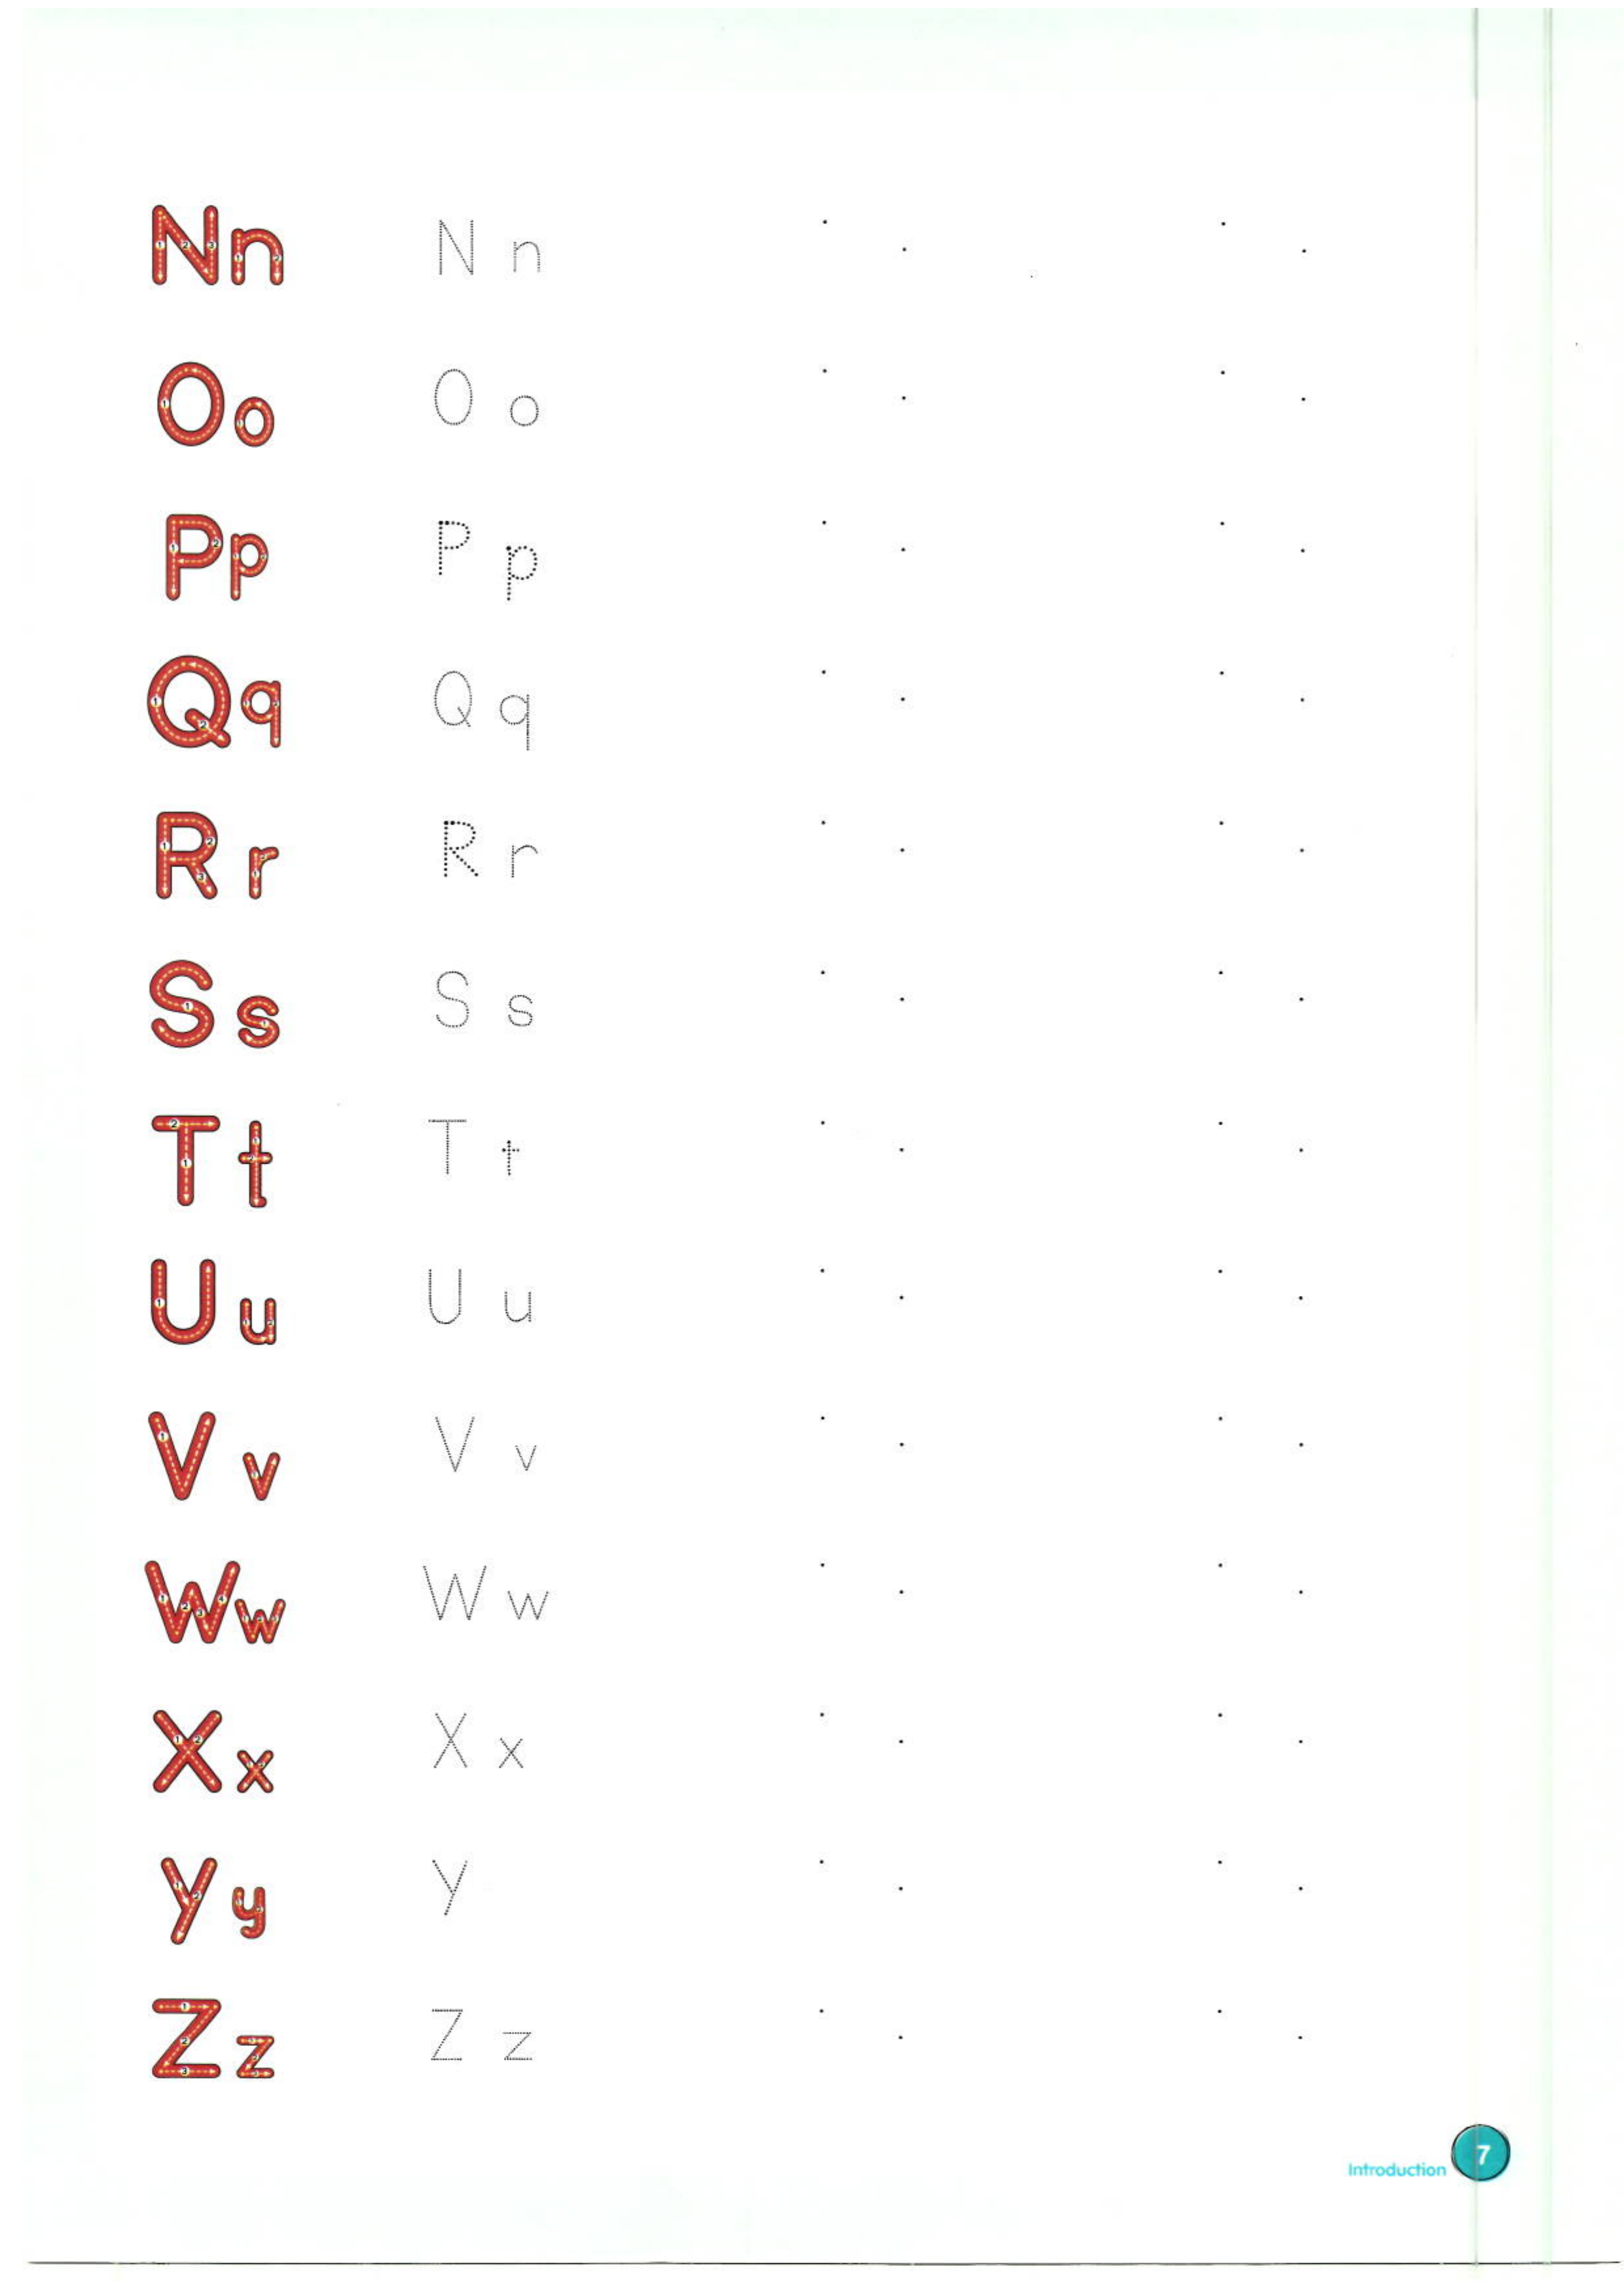 Nn N n
Oo O o
Pp P p
Qq Q q
Rr R r
Ss S s
Tt T t
Uu U u
Vv V v
Ww W w
Xx X x
Yy Y
Zz Z z
Introduction 7